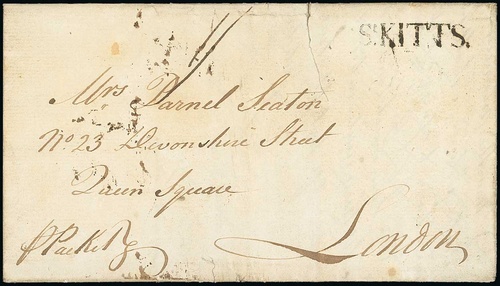 S.KITTS.
Mrs Parnel Seaton
No 23 Devonshire Street
Queen Square
London
p Packet